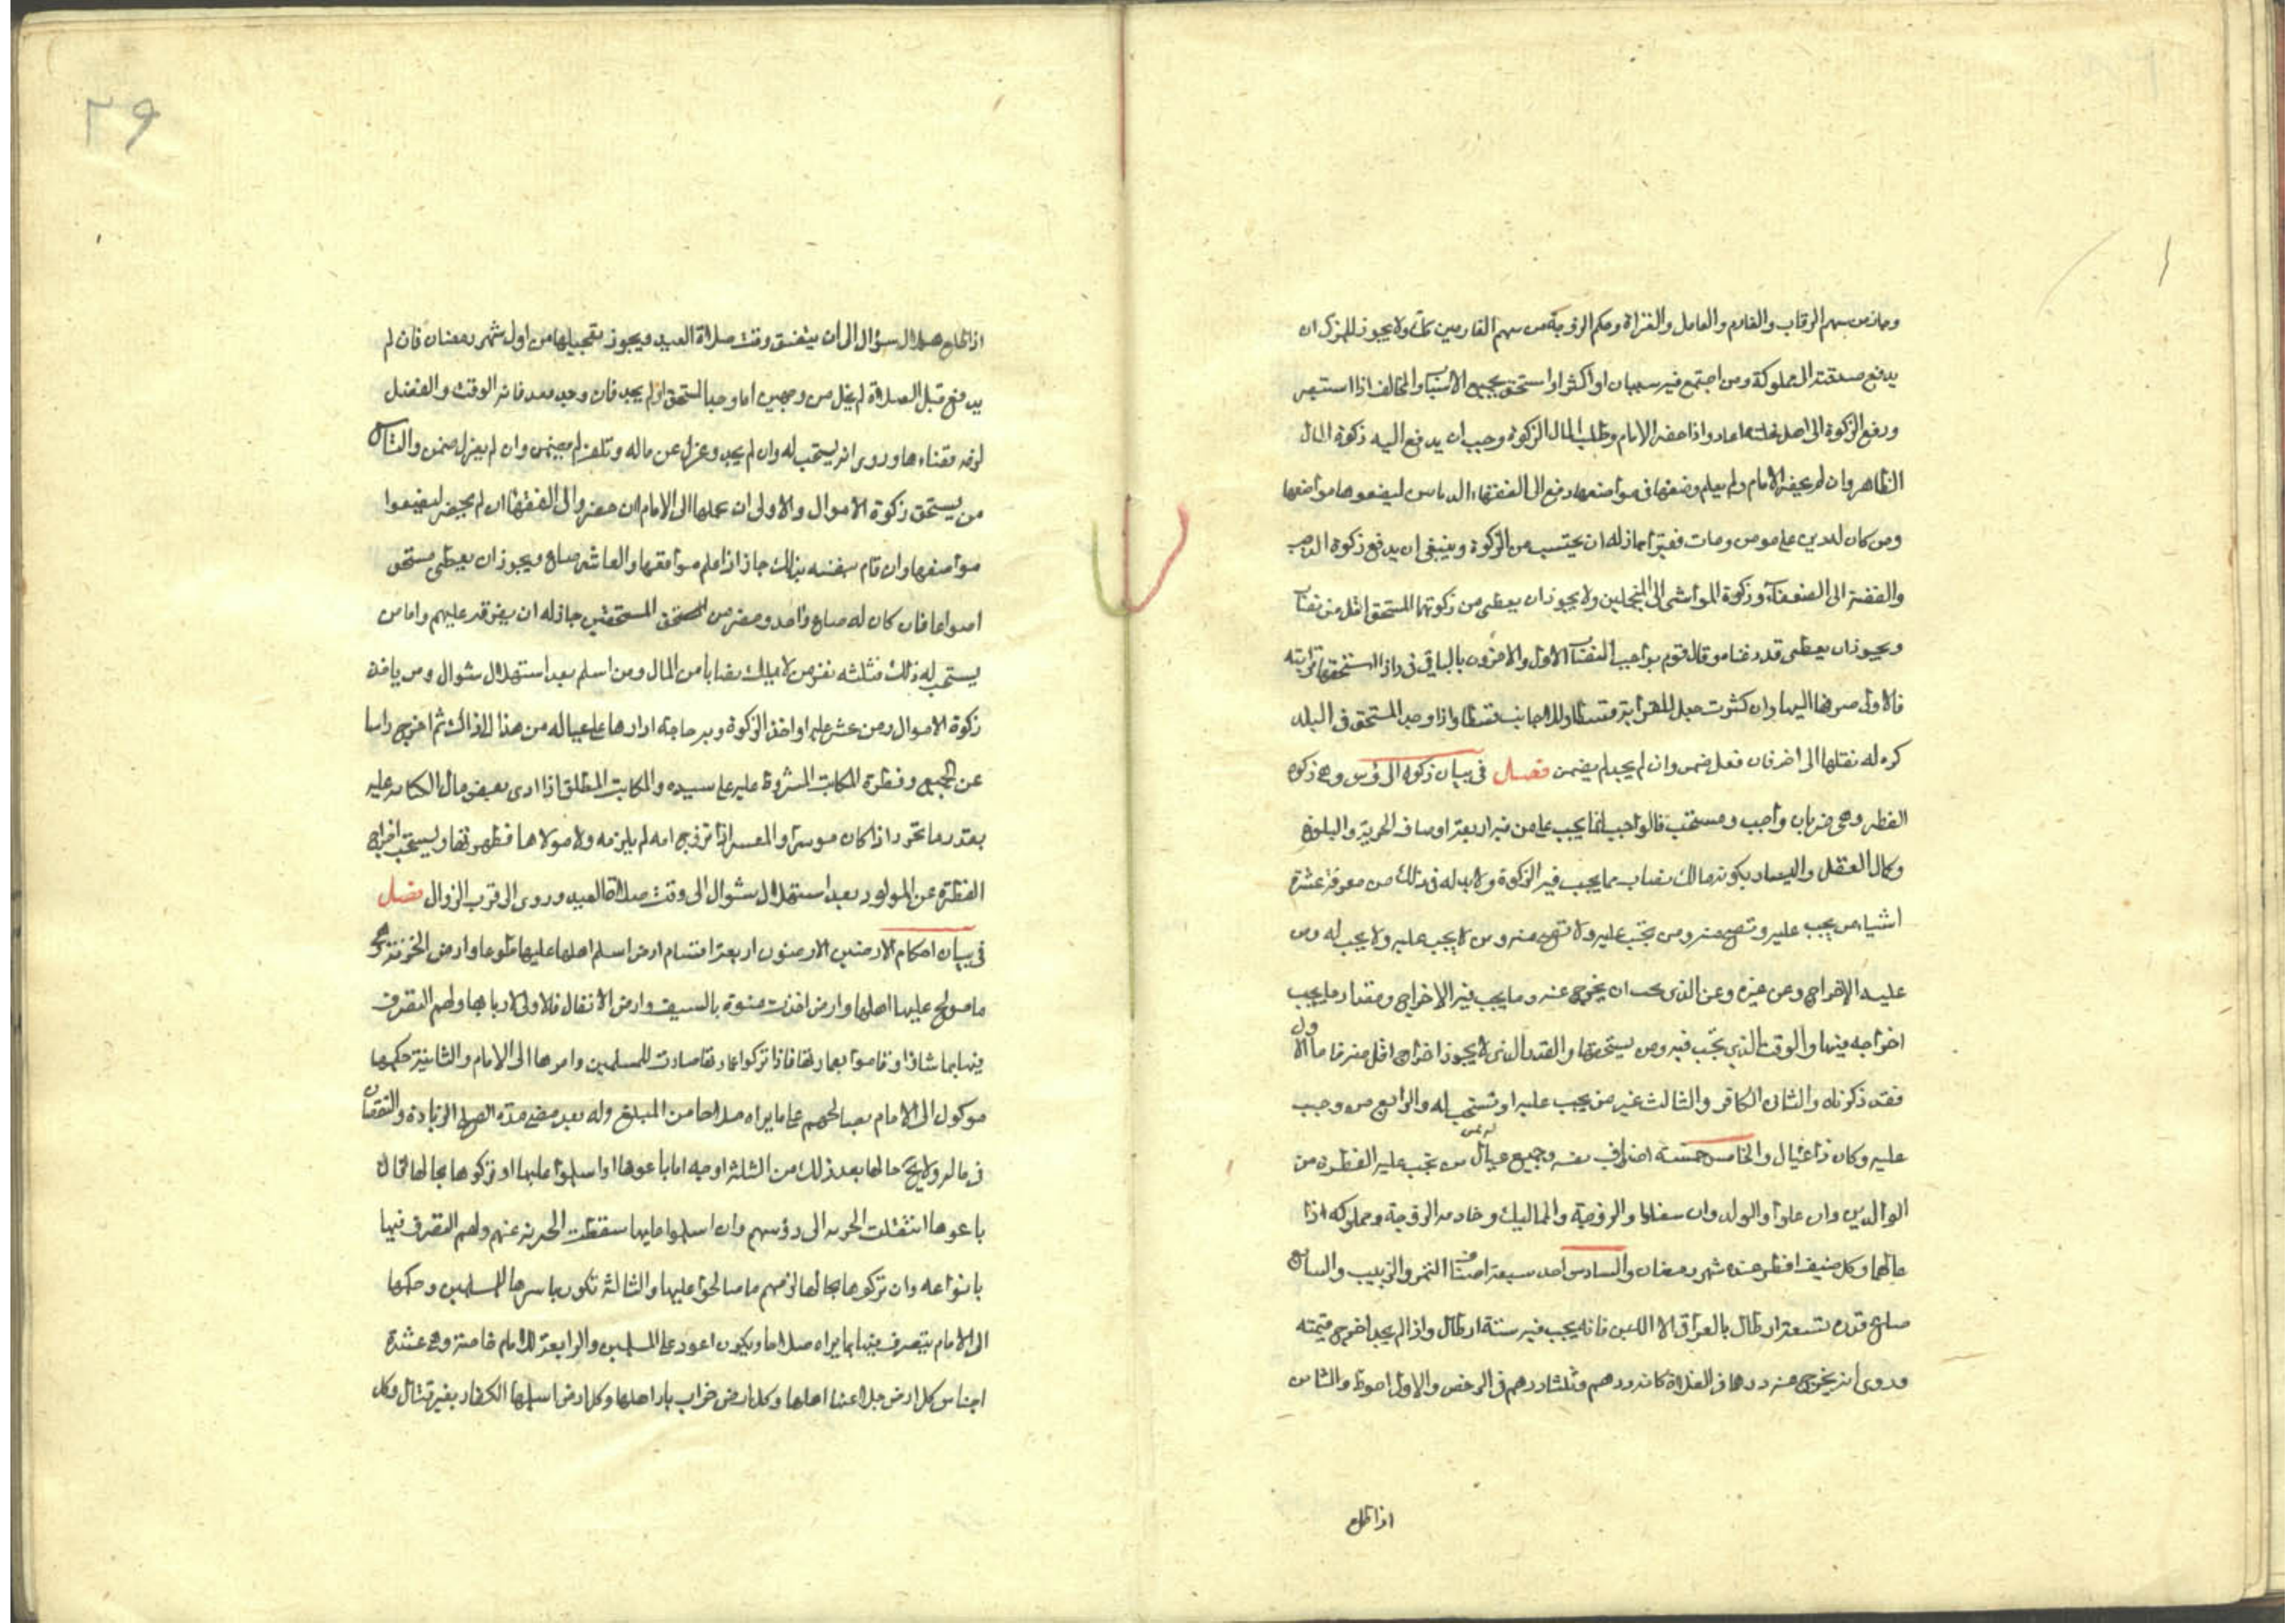 وجاز من سهم الرقاب والغارم والعامل والغزاة وحكم الزوجة من سهم الغارمين ولا يجوز للمزكى ان
يدفع صدقته الى مملوكه ومن اجتمع فيه سببان او اكثر او استحق بجميع الاسباب والمخالف اذا استبصر
ودفع الزكوة الى اهل اعاد واذا حضر الامام وطلب المال الزكوة وجب ان يدفع اليه زكوة المال
الظاهر وان لم يحضر الامام ولم يعلم وضعها فى مواضعها دفع الى الفقهاء الديانين ليضعوها مواضعها
ومن كان له دين على مومن ومات فقيرا جاز له ان يحتسب من الزكوة وينبغى ان يدفع زكوة الذهب
والفضة الى الضعفاء وزكوة المواشى الى المتجملين ولا يجوز ان يعطى من زكوتها المستحق اقل من نصاب
ويجوز ان يعطى قدر غناه وقال قوم بواجب النصاب الاول والاخرون بالباقى فى واذا استحقها قرابته
فالاولى صرفها اليها وان كثرت جعل للقرابة قسطا وللاجانب قسطا واذا وجد المستحق فى البلد
كره له نقلها الى اخر فان فعل ضمن وان لم يجد لم يضمن فصل فى بيان زكوة الرؤس وهى زكوة
الفطر وهى ضربان واجب ومستحب فالواجب انما يجب على من فيه اربعة اوصاف الحرية والبلوغ
وكمال العقل واليسار بكونه مالك نصاب مما يجب فيه الزكوة ولا بد له فى ذلك من معرفة عشرة
اشياء من يجب عليه وتصح منه ومن تجب عليه ولا تصح منه ومن لا يجب عليه ولا يجب له ومن
عليه الاخراج وعن غيره وعن الذى يجب ان يخرج عنه وما يجب فيه الاخراج ومقدار ما يجب
اخراجه منها والوقت الذى تجب فيه ومن يستحقها والقدر الذى لا يجوز اخراج اقل منه فاما الاول
فقد ذكرناه والثانى الكافر والثالث غير من يجب عليه او تستحب له والرابع من وجب
عليه وكان ذا عيال والخامس خمسة اضراب نفسه وجميع عيال من تجب عليه الفطرة من
الوالدين وان علوا والولد وان سفلوا والزوجة والمماليك وخادمه الزوجة ومملوكه اذا
عالهما وكل ضيف افطر عنده شهر رمضان والسادس احد سبعة اصناف التمر والزبيب والسابع
صاع قدره تسعة ارطال بالعراقى الا اللبن فانه يجب فيه ستة ارطال واذا لم يجد اخرج قيمته
وروى انه يخرج عنه درهما فى الغلاة كانه درهم وثلثا درهم فى الرخص والاول احوط والثامن
اذا طلع
٢٩
اذا طلع هلال شوال الى ان يتضيق وقت صلاة العيد ويجوز تعجيلها من اول شهر رمضان فان لم
يدفع قبل الصلاة لم يخل من وجهين اما وجد المستحق او لم يجد فان وجد فقد فاته الوقت والفضل
لزمه قضاءها وروى انه يستحب له وان لم يجد وعزل عن ماله وتلف لم يضمن وان لم يعزل ضمن والتاسع
من يستحق زكوة الاموال والاولى ان يحملها الى الامام ان حضر والى الفقهاء ان لم يحضر ليضعوا
مواضعها وان قام بنفسه بذلك جاز اذا علم مواقعها والعاشر صاع ويجوز ان يعطى مستحق
اصواعا فان كان له صاع واحد وحضر من المستحق المستحقين جاز له ان يفرقه عليهم واما من
يستحب له ذلك فثلثه نفر من لا يملك نصابا من المال ومن اسلم بعد استهلال شوال ومن ياخذ
زكوة الاموال ومن عسر عليه او اخذ الزكوة وبه حاجة ادارها على عياله من هذا الى ذاك ثم اخرج راسا
عن الجميع وفطرة المكاتب المشروط عليه على سيده والمكاتب المطلق اذا ادى بعض مال الكتابة عليه
بقدر ما تحرر اذا كان موسرا والمعسر اذا تزوج امه لم يلزمه ولا مولاها فطرتها ويستحب اخراج
الفطرة عن المولود بعد استهلال شوال الى وقت صلاة العيد وروى الى قرب الزوال فصل
فى بيان احكام الارضين الارضون اربعة اقسام ارض اسلم اهلها عليها طوعا وارض الجزية هى
ما صولح عليها اهلها وارض اخذت عنوة بالسيف وارض الانفال فالاولى لاربابها ولهم التصرف
فيها بما شاؤا وقاموا بعمارتها فاذا تركوا عمارتها صارت للمسلمين وامرها الى الامام والثانية حكمها
موكول الى الامام يصالحهم على ما يراه صلاحا من المبلغ وله بعد مضى مدة الصلح الزيادة والنقصان
فى ماله ولا يخ حالها بعد ذلك من الثلثة اوجه اما باعوها او اسلموا عليها او تركوها بحالها فان
باعوها انتقلت الجزية الى رؤسهم وان اسلموا عليها سقطت الجزية عنهم ولهم التصرف فيها
بانواعه وان تركوها بحالها لزمهم ما صالحوا عليها والثالثة تكون باسرها للمسلمين وحكمها
الى الامام يتصرف فيها بما يراه صلاحا ويكون اعود على المسلمين والرابعة للامام خاصة وهى عشرة
اجناس كل ارض جلا عنها اهلها وكل ارض خراب باد اهلها وكل ارض اسلمها الكفار بغير قتال وكل